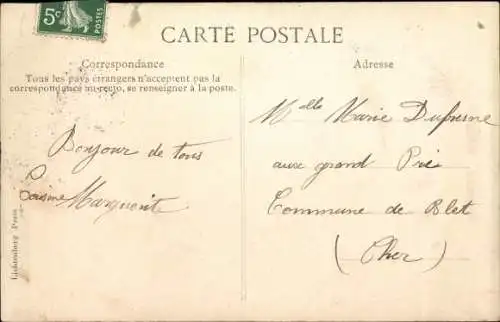 5c
POSTES
CARTE POSTALE
Correspondance
Tous les pays étrangers n'acceptent pas la
correspondance au recto, se renseigner à la poste.
Adresse
Bonjour de tous
Cousine Marguerite
Melle Marie Dufresne
aux grand Pré
Commune de Blet
(Cher)